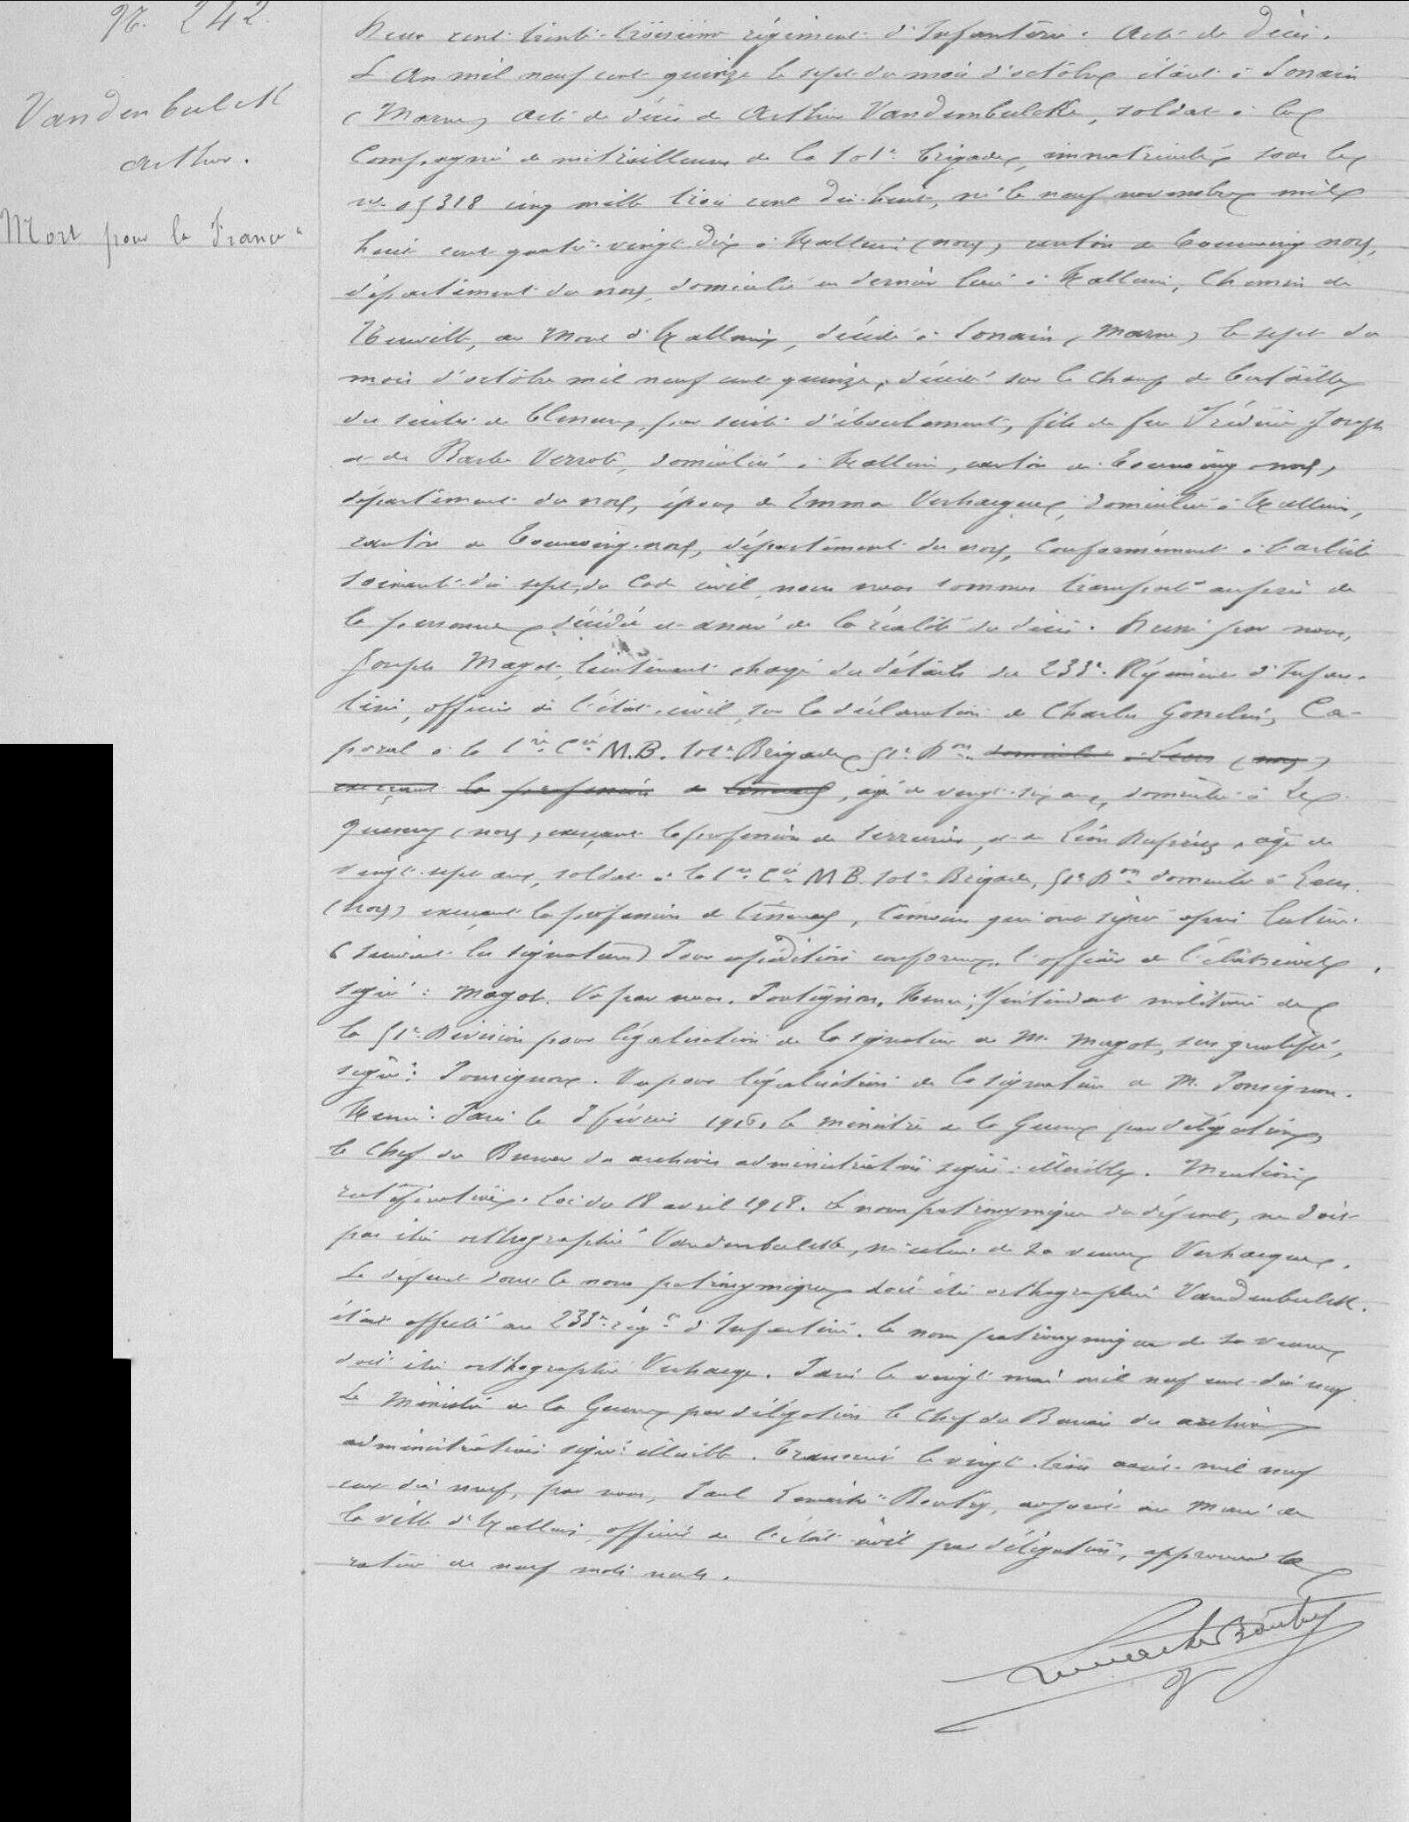 N. 242
Vandenbulck
Arthur.
Mort pour la France
Deux cent trente-troisième régiment d'Infanterie. Acte de décès.
L'An mil neuf cent quinze le sept du mois d'octobre étant à Somain
(Marne) acte de décès de Arthur Vandembulcke, soldat à la
Compagnie de mitrailleuses de la 101e brigade, immatriculé sous le
n° 05318 cinq mille trois cent dix-huit, né le neuf novembre mil
huit cent quatre-vingt-dix à Halluin (nord), canton de Tourcoing nord,
département du nord, domicilié en dernier lieu à Halluin, Chemin de
au Mont d'Halluin, décédé à Somain (Marne) le sept du
mois d'octobre mil neuf cent quinze, décédé sur le champ de bataille
des suites de par suite d'éboulement, fils de feu Frédéric Joseph
et de Barbe Verrote, domicilié à Halluin, canton de Tourcoing nord,
département du nord, époux de Emma Verhaegue, domiciliée à Halluin,
canton de Tourcoing-nord, département du nord, Conformément à l'article
soixante-dix sept du Code civil, nous nous sommes transporté auprès de
la personne décédée et assuré de la réalité du décès. Dressé par nous,
Joseph Magot, lieutenant chargé des détails du 233e Régiment d'Infan-
terie, officier de l'état-civil, sur la déclaration de Charles Ca-
poral à la 1re Cie M.B. 101e Brigade 51e Don domicilié à (nord)
exerçant la profession de, âgé de vingt-six ans, domicilié à Le
Quesnoy (nord), exerçant la profession de serrurier, et de Léon, âgé de
vingt-sept ans, soldat à la 1re Cie M.B. 101e Brigade, 51e Don domicilié à
(nord) exerçant la profession de, témoins qui ont signé après lecture.
(suivent les signatures) Pour expédition conforme, l'officier de l'état-civil,
signé: Magot. Vu par nous, Henri, s/intendant militaire de
la 51e Division pour légalisation de la signature de M. Magot, sus qualifié,
signé: Vu pour légalisation de la signature de M.
Henri. Paris le 3 février 1916, le ministre de la Guerre par délégation,
le Chef du Bureau des archives administratives signé: illisible. Mention
rectificative. Loi du 18 avril 1918. Le nom patronymique du défunt, ne doit
pas être orthographié Vandembulcke, ni celui de sa veuve Verhaegue.
Le défunt dont le nom patronymique doit être orthographié Vandenbulck.
était affecté au 233e régt d'Infanterie. Le nom patronymique de sa veuve
doit être orthographié Verhaege. Paris le vingt mars mil neuf cent dix neuf
Le Ministre de la Guerre par délégation le Chef du Bureau des archives
administratives signé: illisible. Transcrit le vingt-trois août mil neuf
cent dix neuf, par nous, Paul Boutry, adjoint au Maire de
la ville d'Halluin, officier de l'état-civil par délégation, approuvant la
rature de neuf mots nuls.